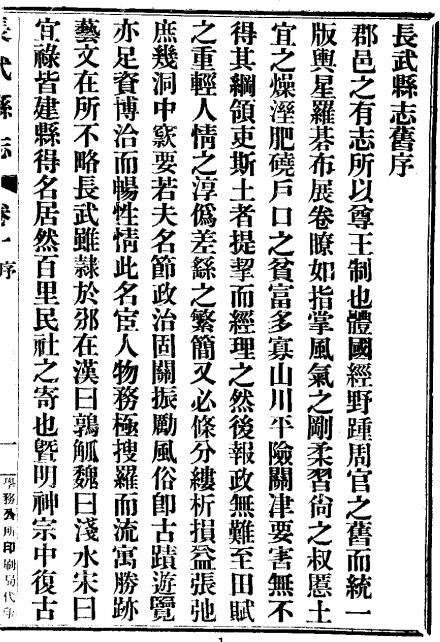 長武縣志舊序
郡邑之有志所以尊王制也體國經野踵周官之舊而統一
版輿星羅棊布展卷瞭如指掌風氣之剛柔習尙之叔慝土
宜之燥溼肥磽戶口之貧富多寡山川平險關津要害無不
得其綱領吏斯土者提挈而經理之然後報政無難至田賦
之重輕人情之淳僞差繇之繁簡又必條分縷析損益張弛
庶幾洞中窾要若夫名節政治固關振勵風俗卽古蹟遊覽
亦足資博洽而暢性情此名宦人物務極搜羅而流寓勝跡
藝文在所不略長武雖隸於邠在漢曰鶉觚魏曰淺水宋曰
宜祿皆建縣得名居然百里民社之寄也曁明神宗中復古
長武縣志
卷一
序
一
學務公所印刷局代印
1